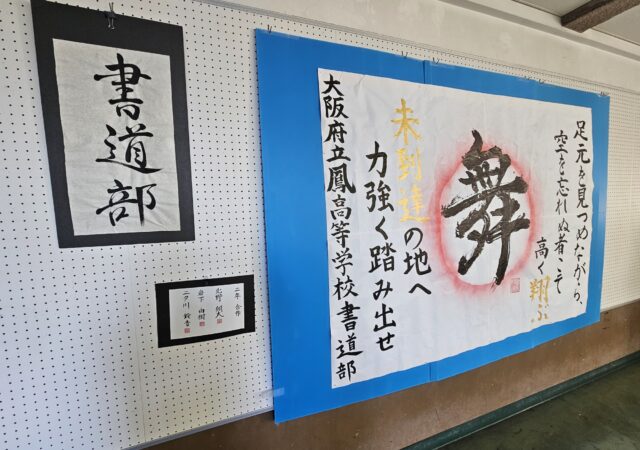 書道部
二年 合作
足元を見つめながら、
空を忘れぬ者こそ
高く翔ぶ
舞
未到達の地へ
力強く踏み出せ
大阪府立鳳高等学校書道部